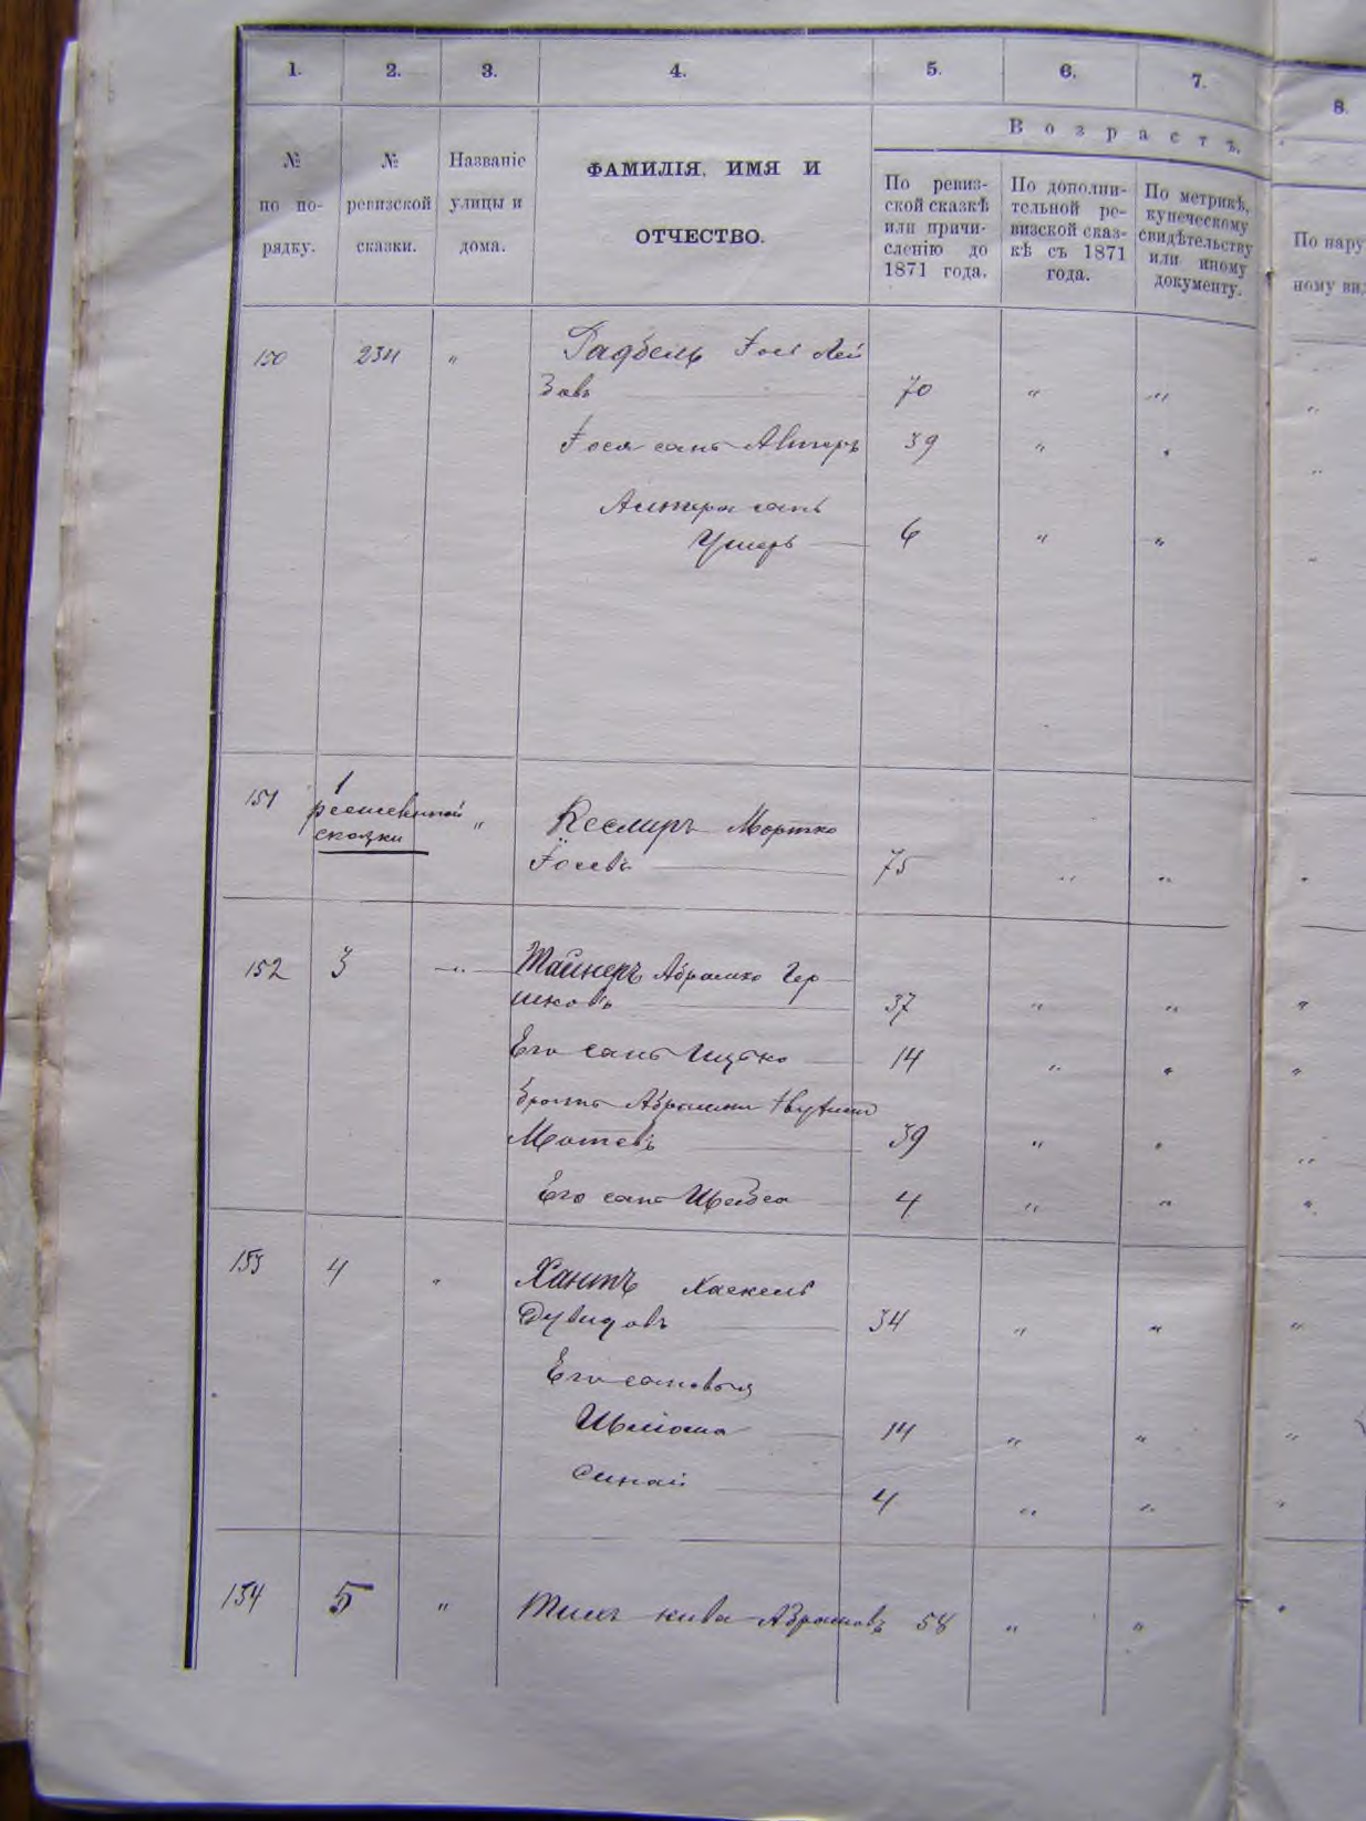 1. 2. 3. 4. 5. 6. 7. 8.
№ по по-рядку.
№ ревизской сказки.
Названіе улицы и дома.
ФАМИЛІЯ, ИМЯ И
ОТЧЕСТВО.
Возрастъ.
По ревиз-
ской сказкѣ
или причи-
сленію до
1871 года.
По дополни-
тельной ре-
визской сказ-
кѣ съ 1871
года.
По метрикѣ,
купеческому
свидѣтельству
или иному
документу.
По нару
ному ви
150 234 "
зовъ 70 " "
Іося сынъ Алтеръ 39 "
Алтера сынъ
Ушеръ 6 " "
151 1
сказки "
Кеслиръ Мортко
Іосевъ 75 " "
152 3 " Тайнеръ Абрамко Гер
шковъ 37 " "
Его сынъ Ицко 14 " "
Мотевъ 39 " "
Его сынъ 4 " "
153 4 " Хантъ Хаскель
Дувидовъ 34 " "
Его сыновья
14 " "
Синай 4 " "
154 5 " Кива Абрамовъ 58 " "